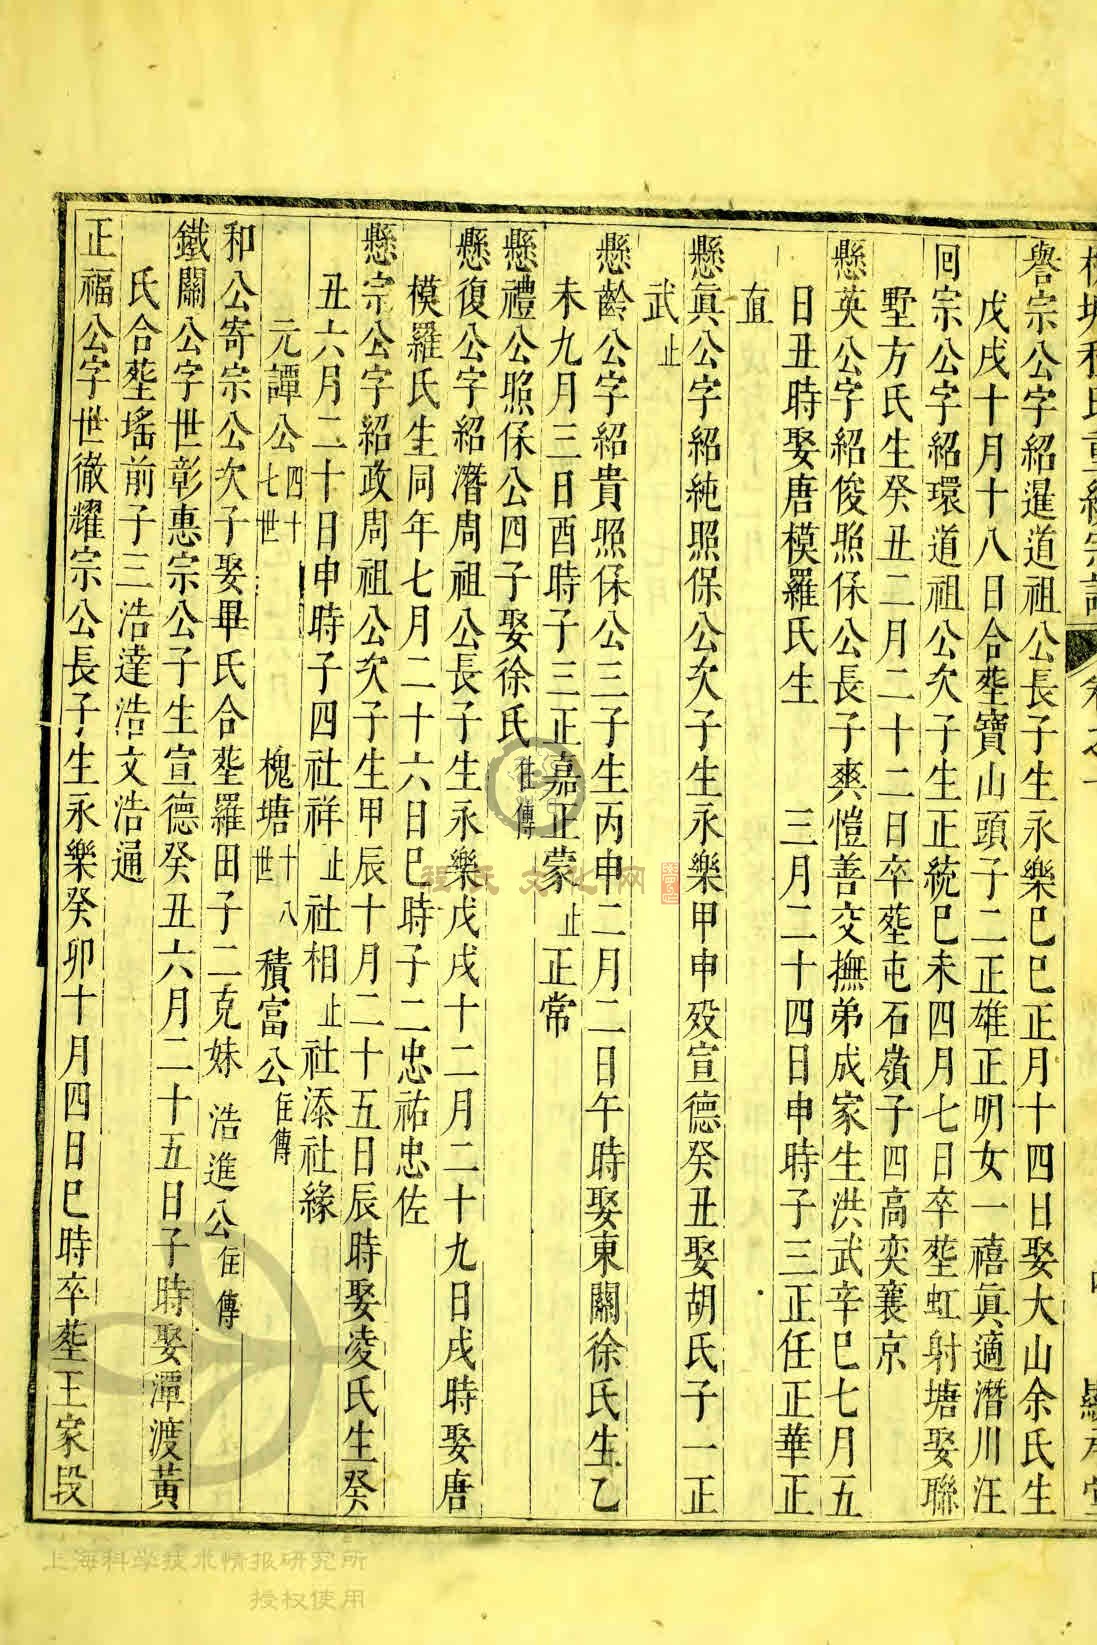 譽宗公字紹暹道祖公長子生永樂己巳正月十四日娶大山余氏生
戊戌十月十八日合塟寶山頭子二正雄正明女一禧眞適潛川汪
回宗公字紹環道祖公次子生正統己未四月七日卒塟虹射塘娶聯
墅方氏生癸丑二月二十二日卒塟屯石嶺子四高奕襄京
懸英公字紹俊照保公長子爽愷善交撫弟成家生洪武辛巳七月五
日丑時娶唐模羅氏生 三月二十四日申時子三正任正華正
直
懸眞公字紹純照保公次子生永樂甲申歿宣德癸丑娶胡氏子一正
武止
懸齡公字紹貴照保公三子生丙申二月二日午時娶東關徐氏生乙
未九月三日酉時子三正嘉正蒙止正常
懸禮公照保公四子娶徐氏 傳
懸復公字紹潛周祖公長子生永樂戊戌十二月二十九日戌時娶唐
模羅氏生同年七月二十六日巳時子二忠祐忠佐
懸宗公字紹政周祖公次子生甲辰十月二十五日辰時娶凌氏生癸
丑六月二十日申時子四社祥止社相止社添社緣
元譚公四十七世 槐塘十八世 積富公 傳
和公寄宗公次子娶畢氏合塟羅田子二克妹 浩進公 傳
鐵關公字世彰惠宗公子生宣德癸丑六月二十五日子時娶潭渡黃
氏合塟瑤前子三浩達浩文浩通
正福公字世徹耀宗公長子生永樂癸卯十月四日巳時卒塟王家段
程氏文化网
上海科学技术情报研究所
授权使用